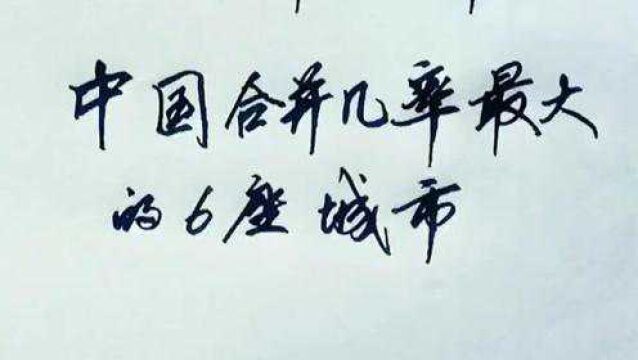 中国合并几率最大
的6座城市